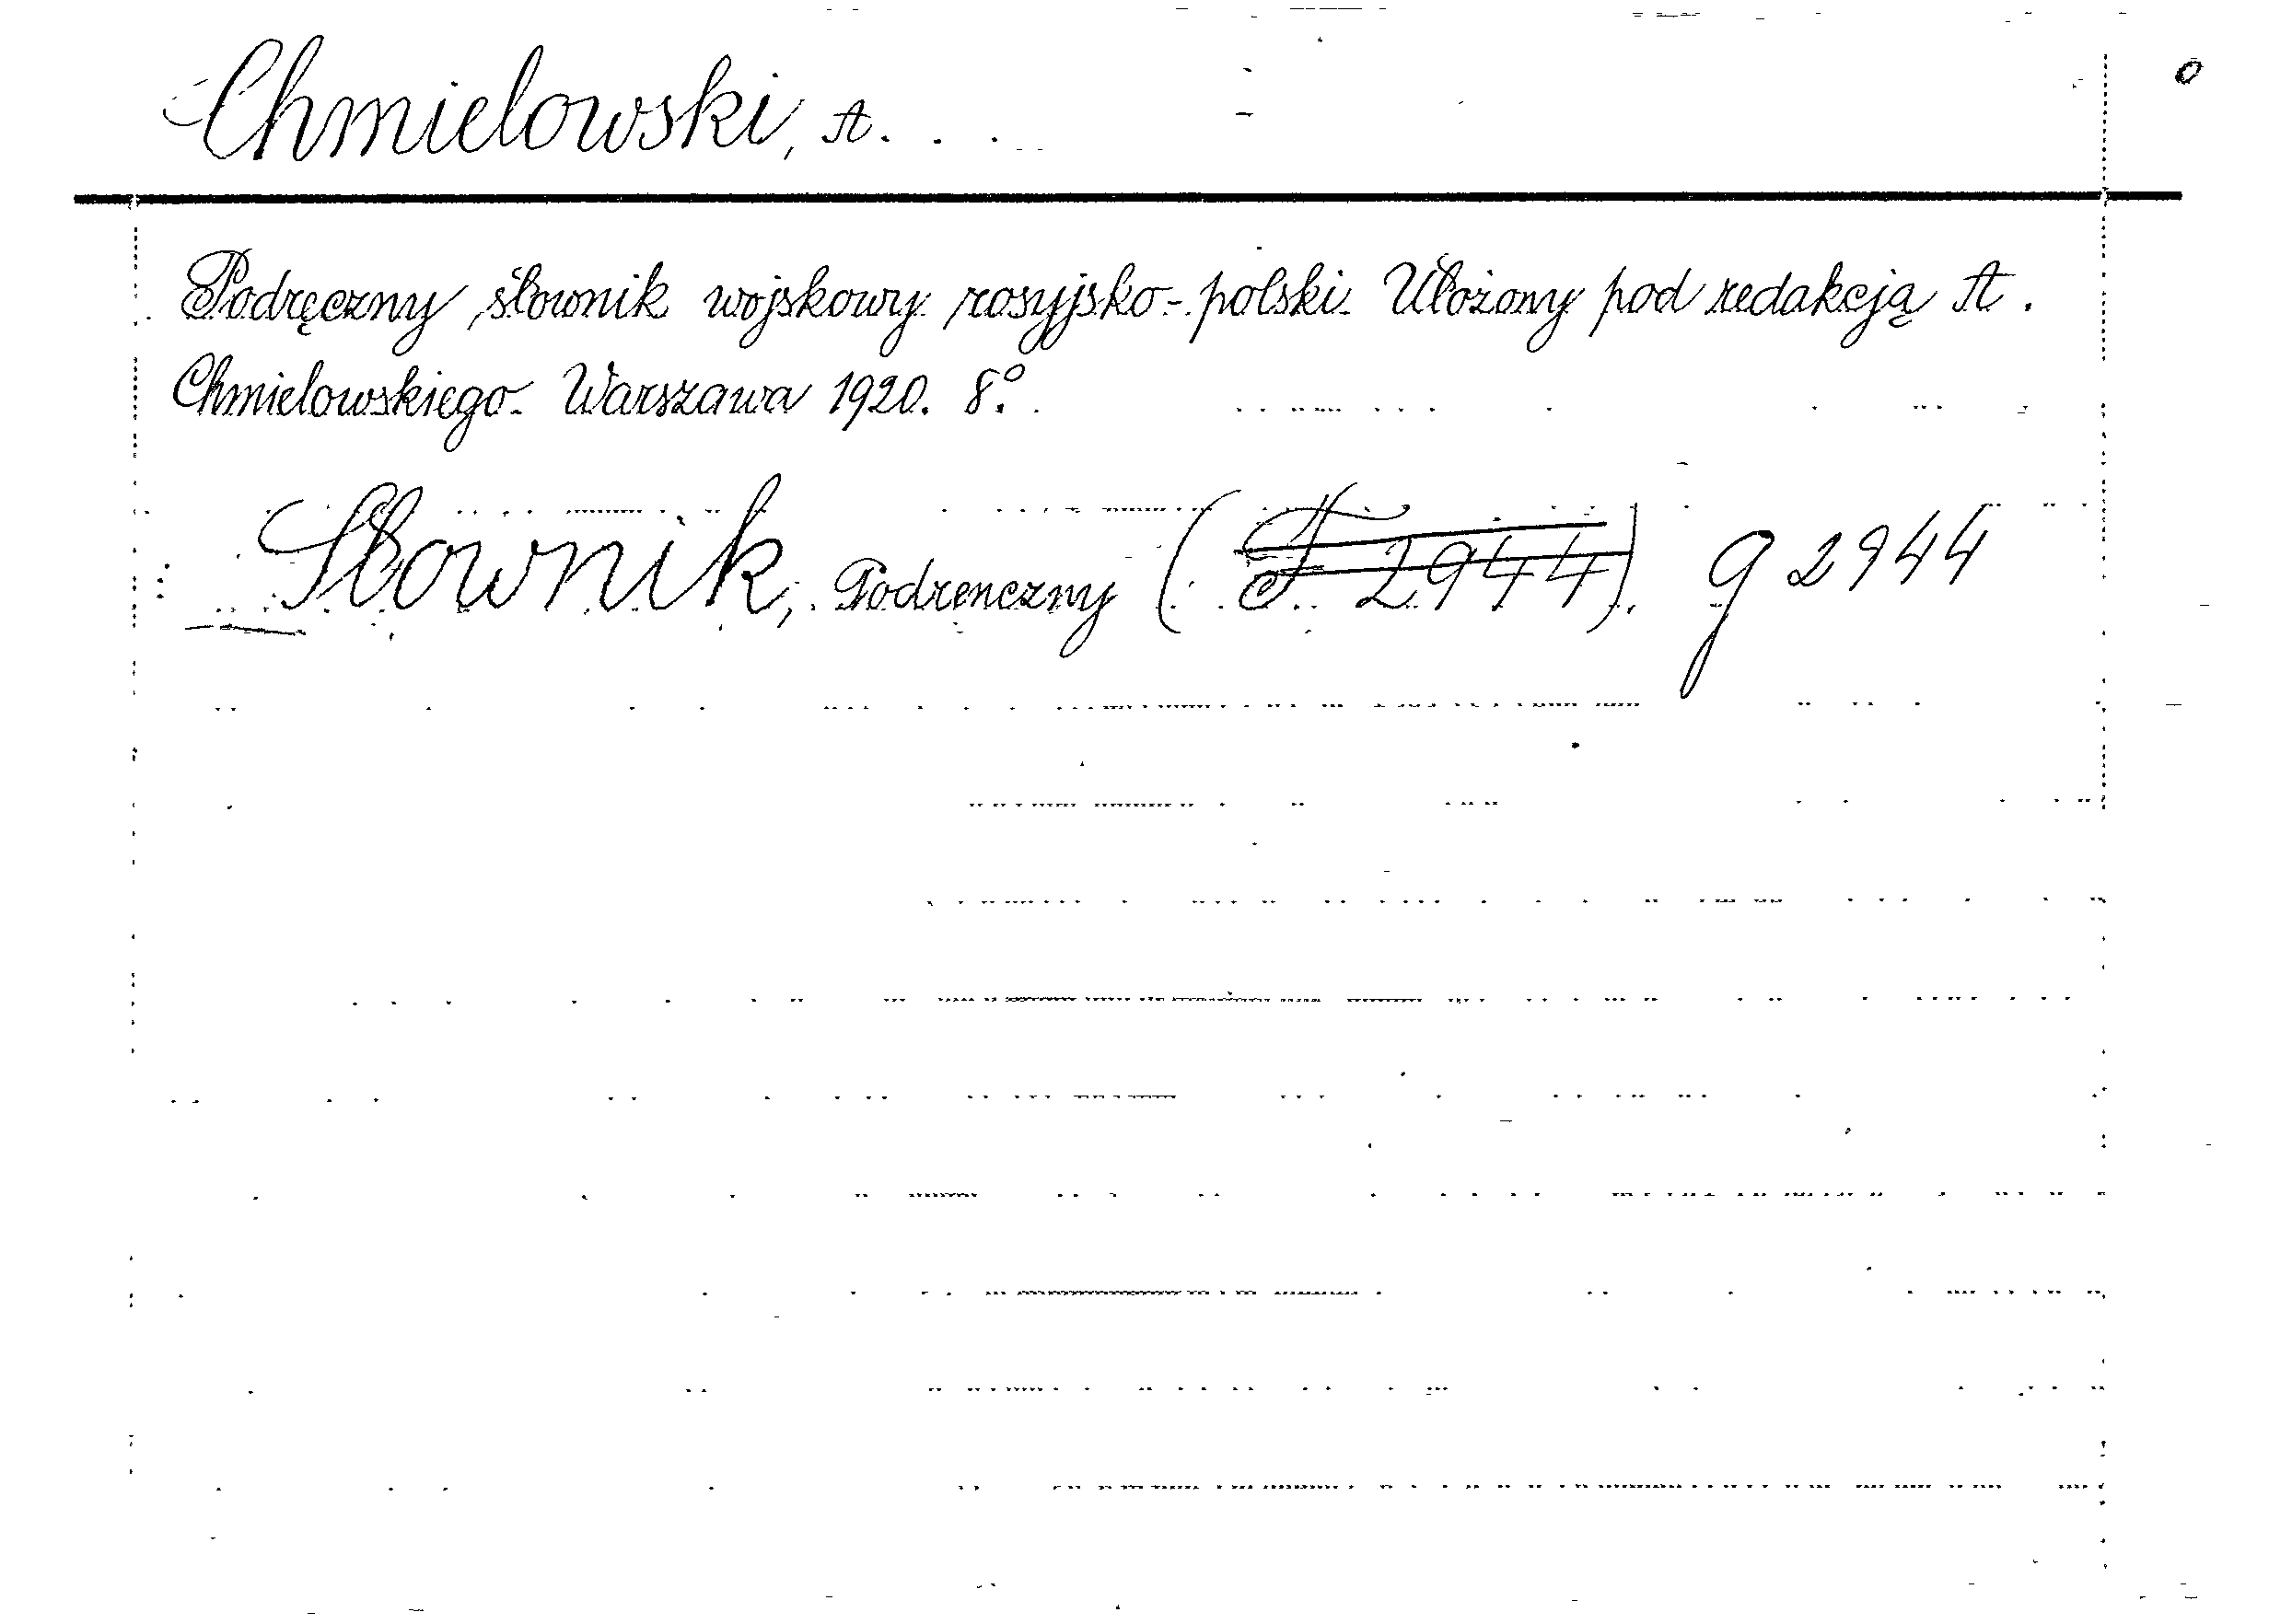 Chmielowski, A.
Podręczny słownik wojskowy rosyjsko-polski. Ułożony pod redakcją A.
Chmielowskiego. Warszawa 1920. 8°.
Słownik, Podrenczny ( 2944). q 2944